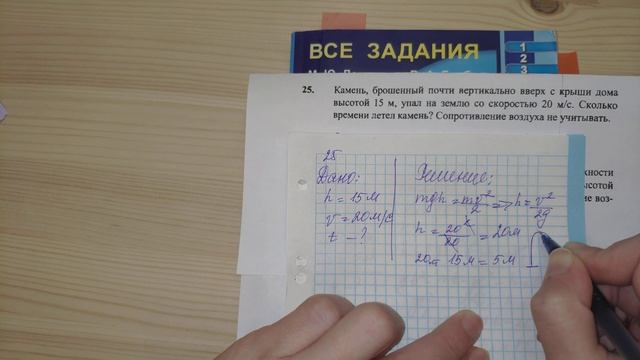 ВСЕ ЗАДАНИЯ
1
2
3
25. Камень, брошенный почти вертикально вверх с крыши дома
высотой 15 м, упал на землю со скоростью 20 м/с. Сколько
времени летел камень? Сопротивление воздуха не учитывать.
высотой
ие воз-
25
Дано:
h = 15 м
v = 20 м/с
t - ?
Решение:
mgh = mv²/2 => h = v²/2g
h = 20²/20 = 20м
20м - 15м = 5м